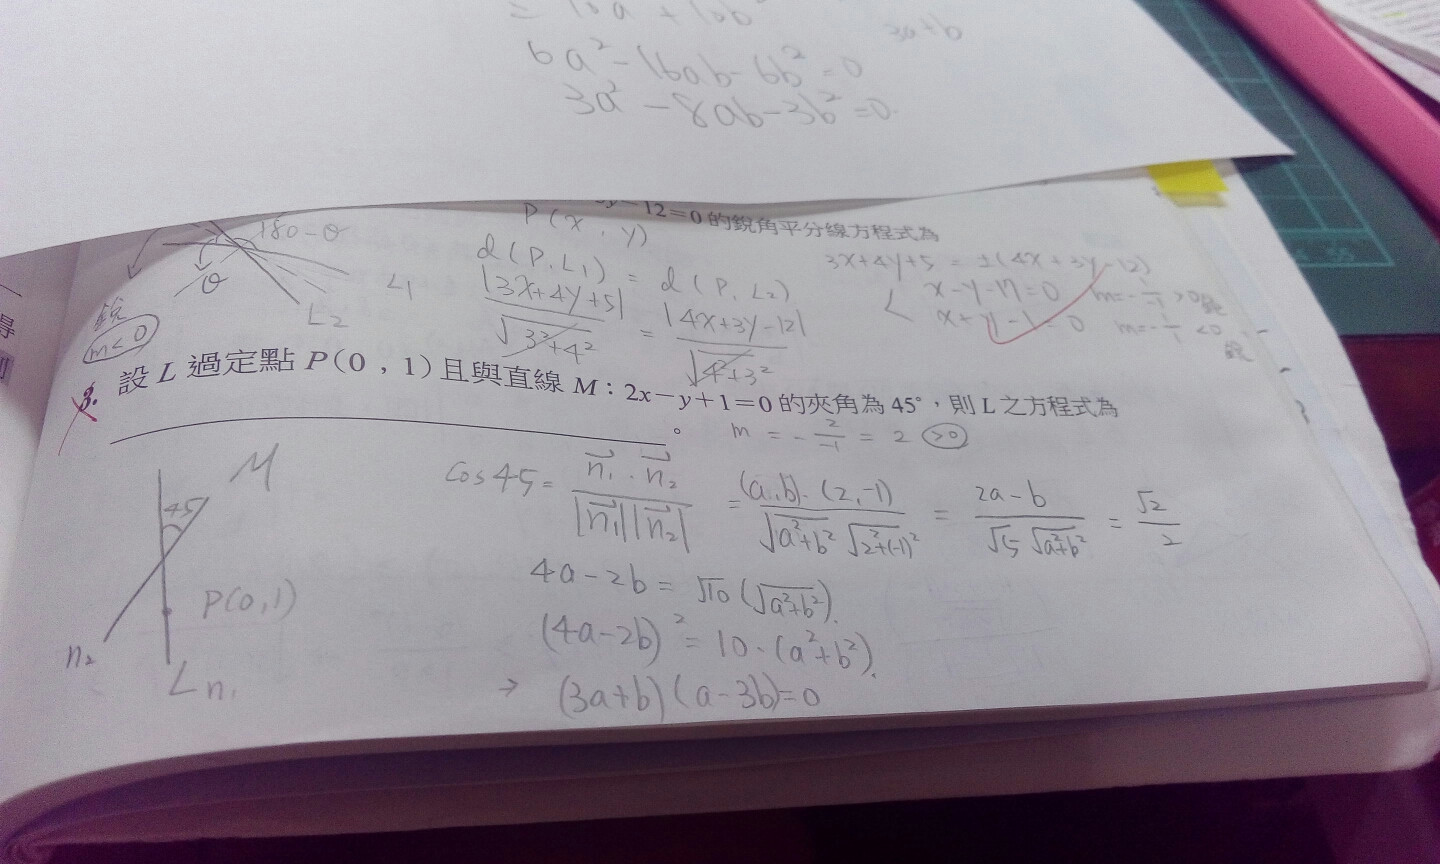 = 10a² + 10b²
3a+b
6a²-16ab-6b²=0
3a²-8ab-3b²=0.
y-12=0 的銳角平分線方程式為
P(x,y)
180-θ
θ
L1
L2
銳
m<0
d(P,L1) = d(P,L2)
|3x+4y+5| / √3²+4² = |4x+3y-12| / √4²+3²
3x+4y+5 = ±(4x+3y-12)
x-y-17=0 m=-1/-1>0鈍
x+y-1=0 m=-1/1<0
銳
得
則
3. 設 L 過定點 P(0,1)且與直線 M:2x-y+1=0 的夾角為 45°,則 L 之方程式為
。
m = -2/-1 = 2 >0
M
45
P(0,1)
n₂
L n₁
cos45= n₁·n₂ / |n₁||n₂| = (a,b)·(2,-1) / √a²+b² √2²+(-1)² = 2a-b / √5 √a²+b² = √2 / 2
4a-2b = √10 (√a²+b²).
(4a-2b)² = 10·(a²+b²).
→ (3a+b)(a-3b)=0